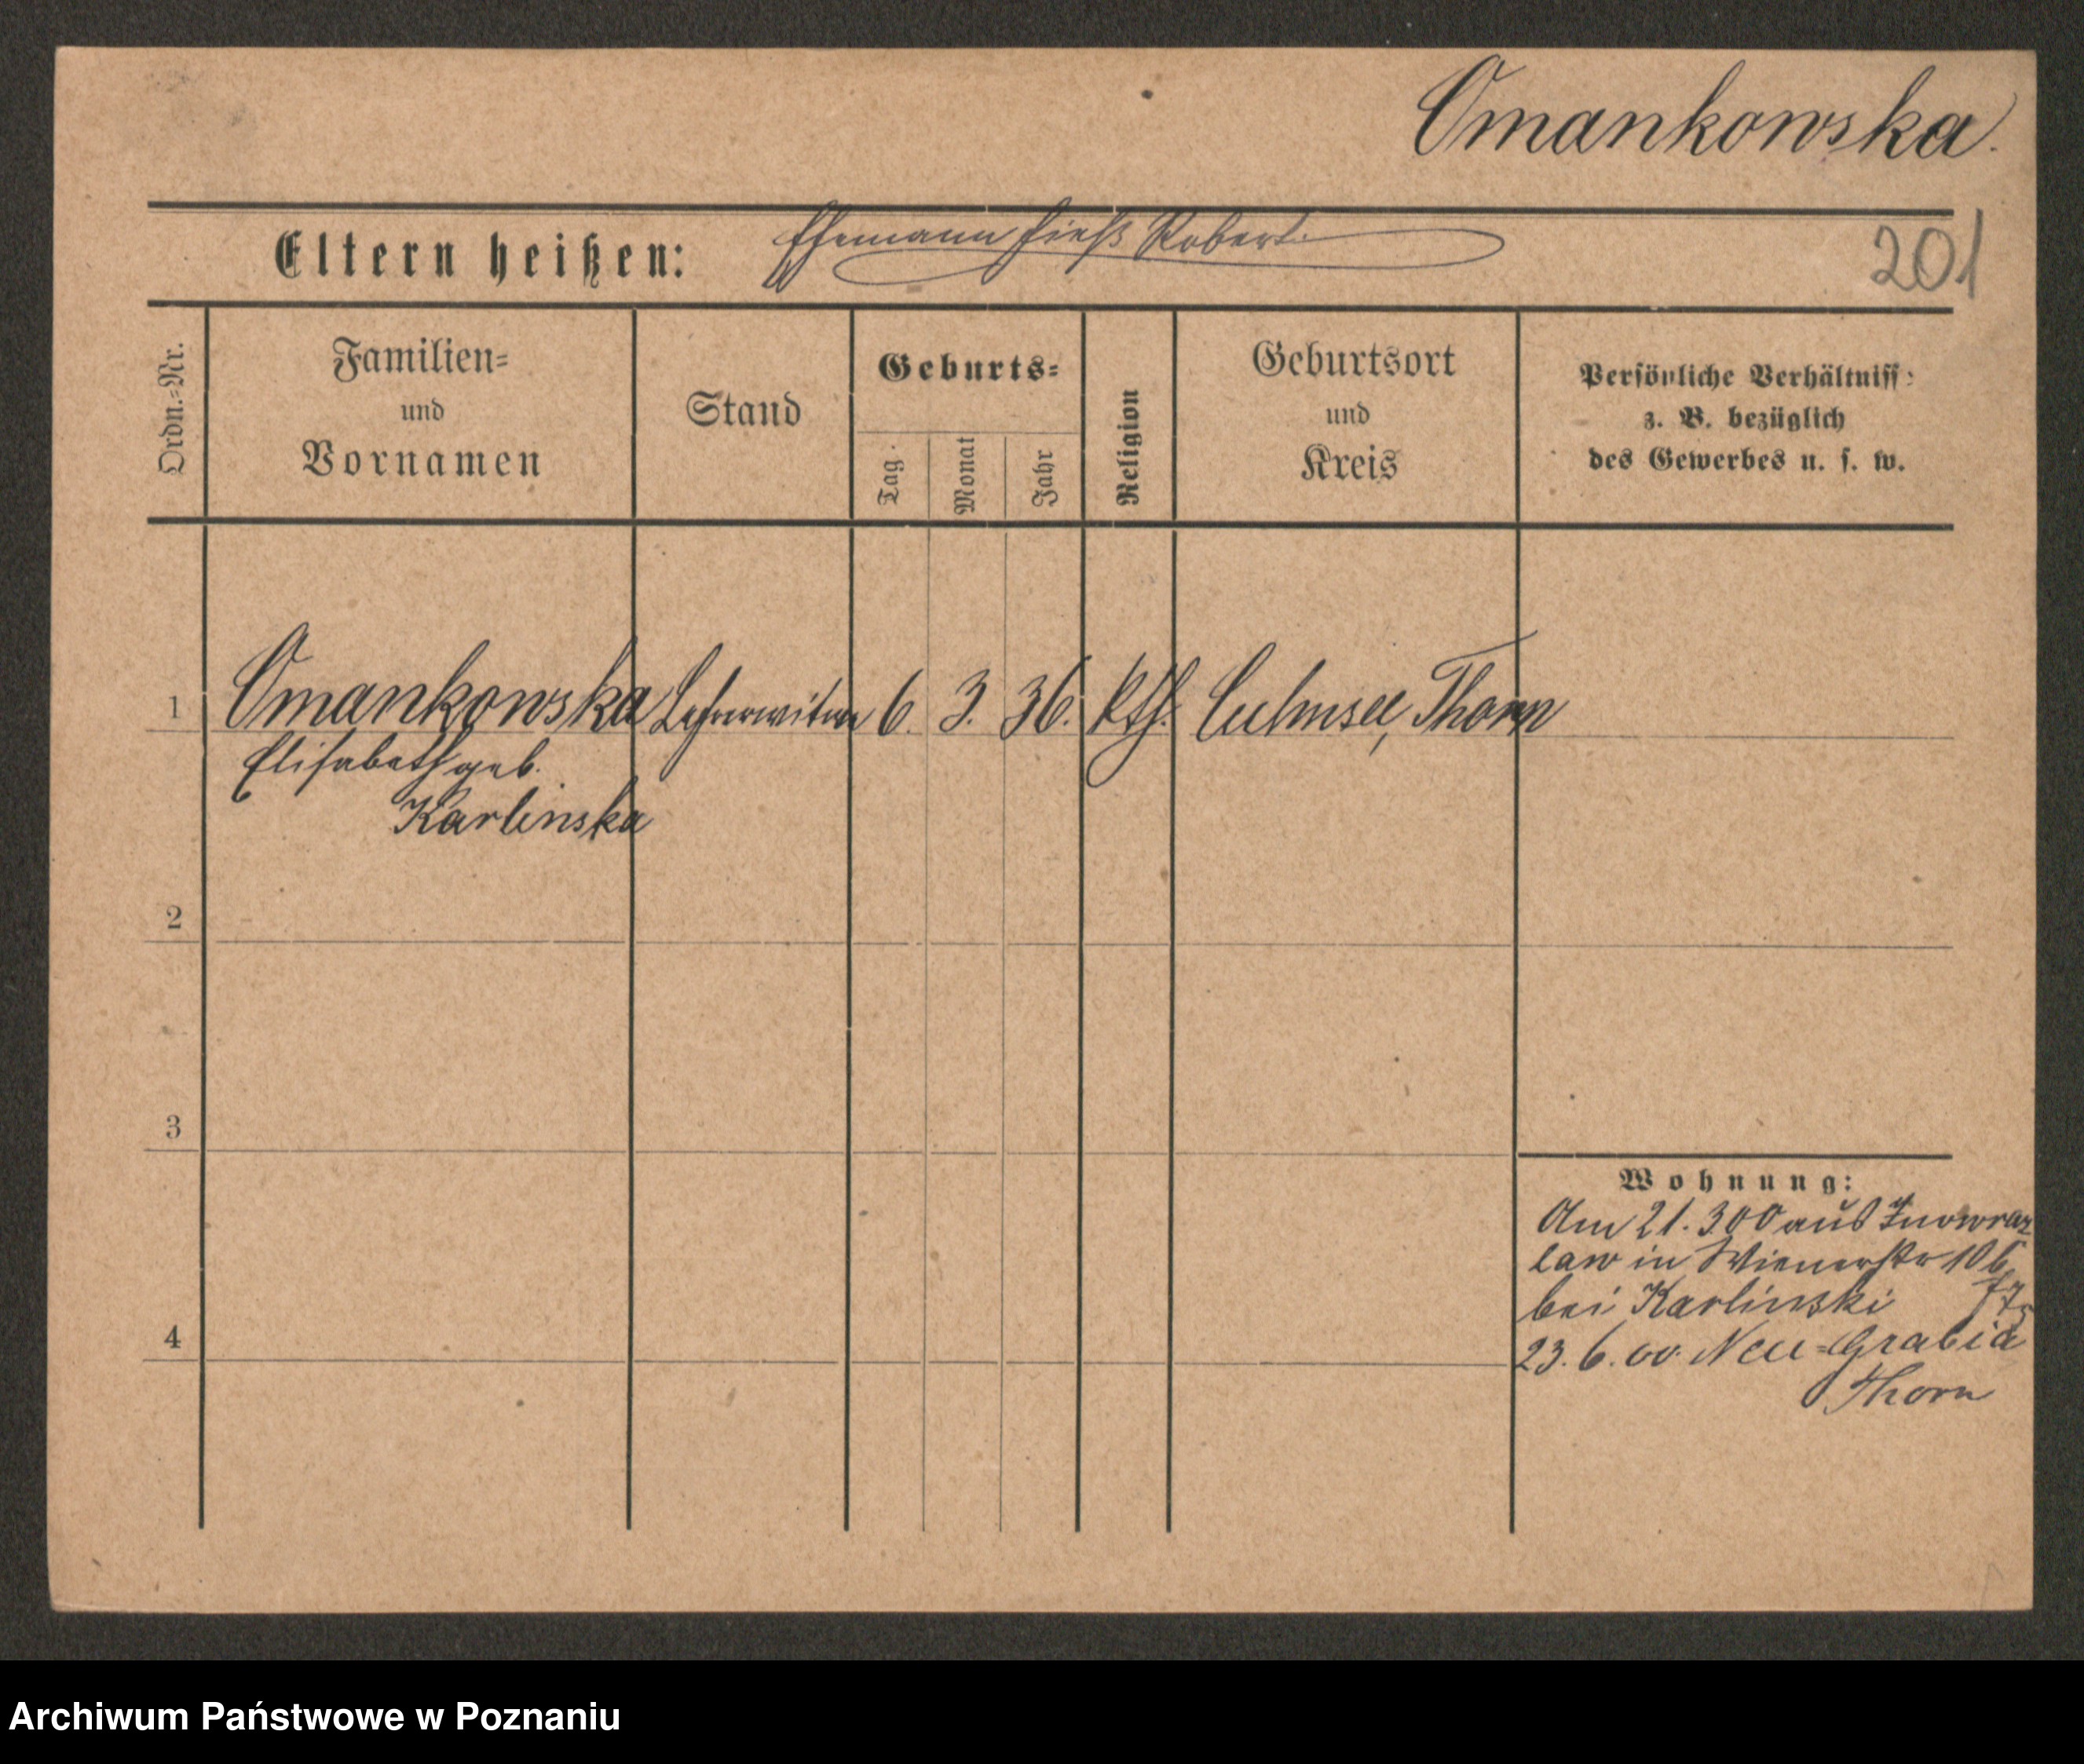 Omankowska.
Eltern heißen: Ehemann hieß Robert.
201
Ordn.-Nr.
Familien-
und
Vornamen
Stand
Geburts-
Tag.
Monat
Jahr
Religion
Geburtsort
und
Kreis
Persönliche Verhältniss
z. B. bezüglich
des Gewerbes u. s. w.
1 Omankowska Lehrerwitwe 6. 3. 36. kth. Culmsee, Thorn
Elisabeth geb.
Karlinska
2
3
4
Wohnung:
Am 21.3.00 aus Inowraz
law in Wienerstr 10 b
bei Karlinski
23.6.00. Neu-Grabia
Thorn
Archiwum Państwowe w Poznaniu